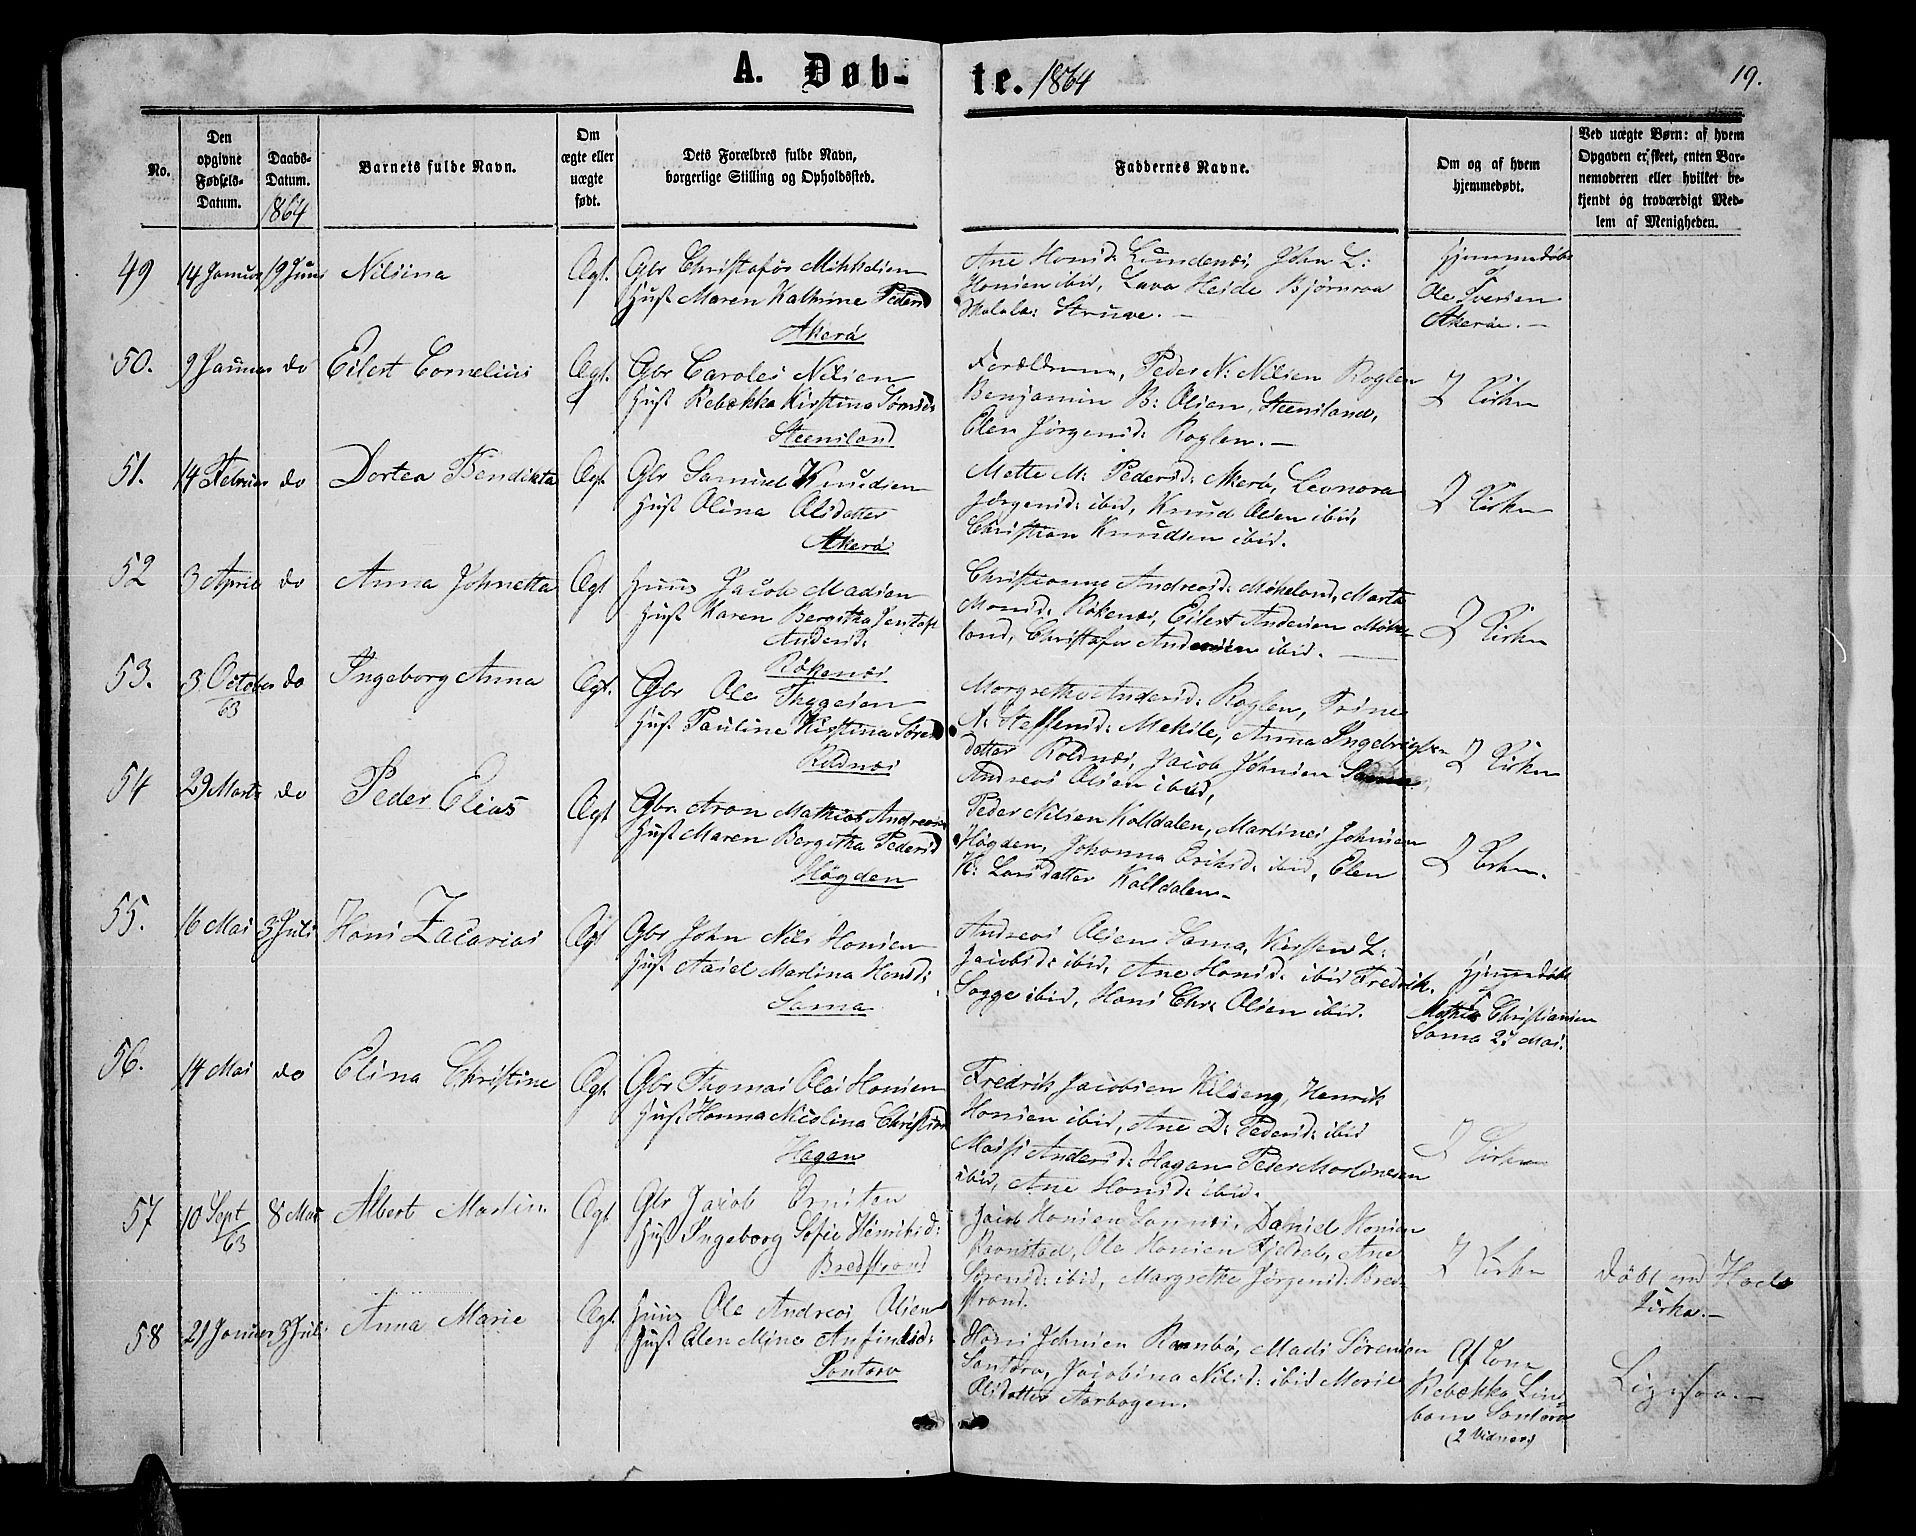 A. Døb-
te. 1864
19.
No.
Den
opgivne
Fødsels-
Datum.
Daabs-
Datum.
1864
Barnets fulde Navn.
Om
ægte eller
uægte
født.
Dets Forældres fulde Navn,
borgerlige Stilling og Opholdssted.
Faddernes Navne.
Om og af hvem
hjemmedøbt.
Ved uægte Børn: af hvem
Opgaven er skeet, enten Bar-
nemoderen eller hvilket be-
kjendt og troværdigt Med-
lem af Menigheden.
49
14 Januar
19 Juni
Nilsina
Ægt.
Gbr Christofor Mikkelsen
Hust Maren Kathrine Pedersd
Akerö
Ane Hansd: Lundenæs, John L:
Hansen ibid, Lava Heide Bjørnraa
Struve. —
Hjemmedøbt
af
Ole Iversen
Akerö. —
50.
9 Januar
do
Eilert Cornelius
Ægt.
Gbr Caroles Nilsen
Hust Rebækka Kirstina
Steensland
Forældrene, Peder N: Nilsen Roglen
Benjamin B: Olsen, Steensland,
Elen Jørgensd: Roglen. —
I Kirken
51.
14 Februar
do
Dortea Bendikta
Ægt
Gbr Samuel Knudsen
Hust Olina Olsdatter
Akerö
Mette M: Pedersd: Akerö, Leonora
Jørgensd: ibid, Knud Olsen ibid,
Christian Knudsen ibid.
I Kirken
52
3 April
do
Anna Johnetta
Ægt
Huus Jacob Madsen
Hust Karen Bergitha Jentoft
Andersd:
Rökenæs
Christianna Andreasd: Mökeland, Marta
Monsd: Rökenæs, Eilert Andersen Möke-
land, Christofer Andersen ibid. —
I Kirken
53.
3 October
63
do
Ingeborg Anna
Ægt.
Gbr Ole Thygesen
Hust Pauline Kirstina Sørensd
Roldnæs
Margrethe Andersd: Roglen, Trine
A: Steffensd: Mekile, Anna Ingebrigts-
datter Roldnæs, Jacob Johnsen Sama
Andreas Olsen ibid,
I Kirken
54
29 Marts
do
Peder Elias
Ægt
Gbr. Aron Mathias Andreasen
Hust Maren Bergitha Pedersd
Høgden
Peder Nilsen Kolldalen, Martines Johnsen
Høgden, Johanna Eriksd: ibid, Elen
K: Larsdatter Kolldalen. —
I Kirken.
55.
16 Mai
3 Juli
Hans Zacarias
Ægt
Gbr John Nils Hansen
Hust Marlina Hansd:
Sama
Andreas Olsen Sama, Kirsten L:
Jacobsd: ibid, Ane Hansd: ibid Fredrik
Sogge ibid, Hans Chr: Olsen ibid.
Hjemmedøbt
af
Mathias Christiansen
Sama 27 Mai.
56.
14 Mai
do
Elina Christine
Ægt.
Gbr Thomas Olai Hansen
Hust Hanna Nicolina Christiansd
Hagan
Fredrik Jacobsen Kilseng, Henrik
Hansen ibid, Ane D: Pedersd: ibid
Andersd: Hagan Peder Martinesen
ibid, Ane Hansd: ibid.
I Kirken
57
10 Sept
63
8 Mai
Albert Martin
Ægt
Gbr Jacob
Hust Ingeborg Sofie Henriksd:
Bredstrand
Jacob Hansen Daniel Hansen
Ravnstad, Ole Hansen Fjeldal, Ane
Sörensd: ibid, Margrethe Jørgensd: Bred-
strand.
I Kirken
Døbt ved Hads
Kirke. —
58
21 Januar
3 Juli
Anna Marie
Ægt.
Huus Ole Andreas Olsen
Hust Elen Mina Anfindsd:
Santorø
Hans Johnsen Mads Sörensen
Santorø, Jacobina Nilsd: ibid Marie
Olsdatter Aarbogen.
Af
Rebækka
Santorø
(2 Vidner)